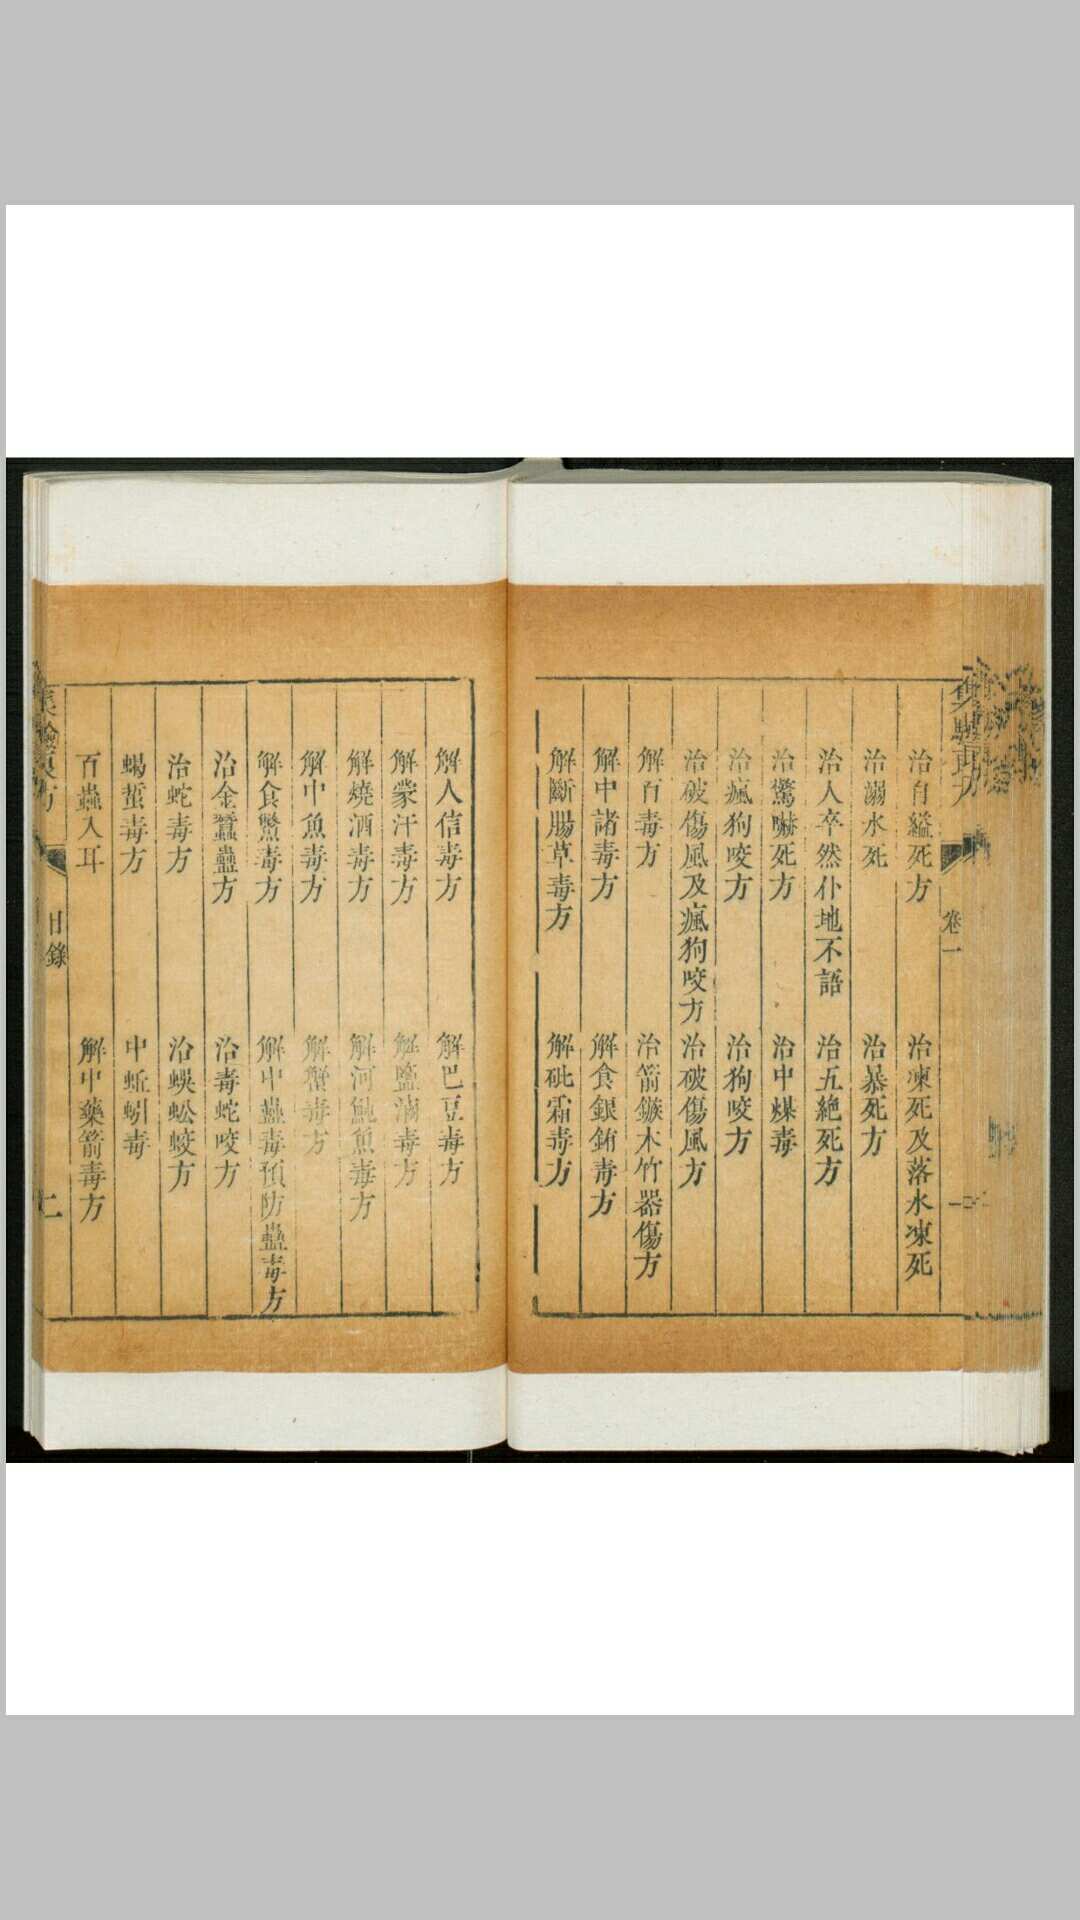 治自縊死方　治凍死及落水凍死
治溺水死　治暴死方
治人卒然仆地不語　治五絶死方
治驚嚇死方　治中煤毒
治瘋狗咬方　治狗咬方
治破傷風及瘋狗咬方　治破傷風方
解百毒方　治箭鏃木竹器傷方
解中諸毒方　解食銀銪毒方
解斷腸草毒方　解砒霜毒方
解人信毒方　解巴豆毒方
解蒙汗毒方　解鹽滷毒方
解燒酒毒方　解河魨魚毒方
解中魚毒方　解蟹毒方
解食鱉毒方　解中蠱毒預防蠱毒方
治金蠶蠱方　治毒蛇咬方
治蛇毒方　治蜈蚣蛟方
蝎蜇毒方　中蚯蚓毒
百蟲入耳　解中藥箭毒方
卷一
目錄
二